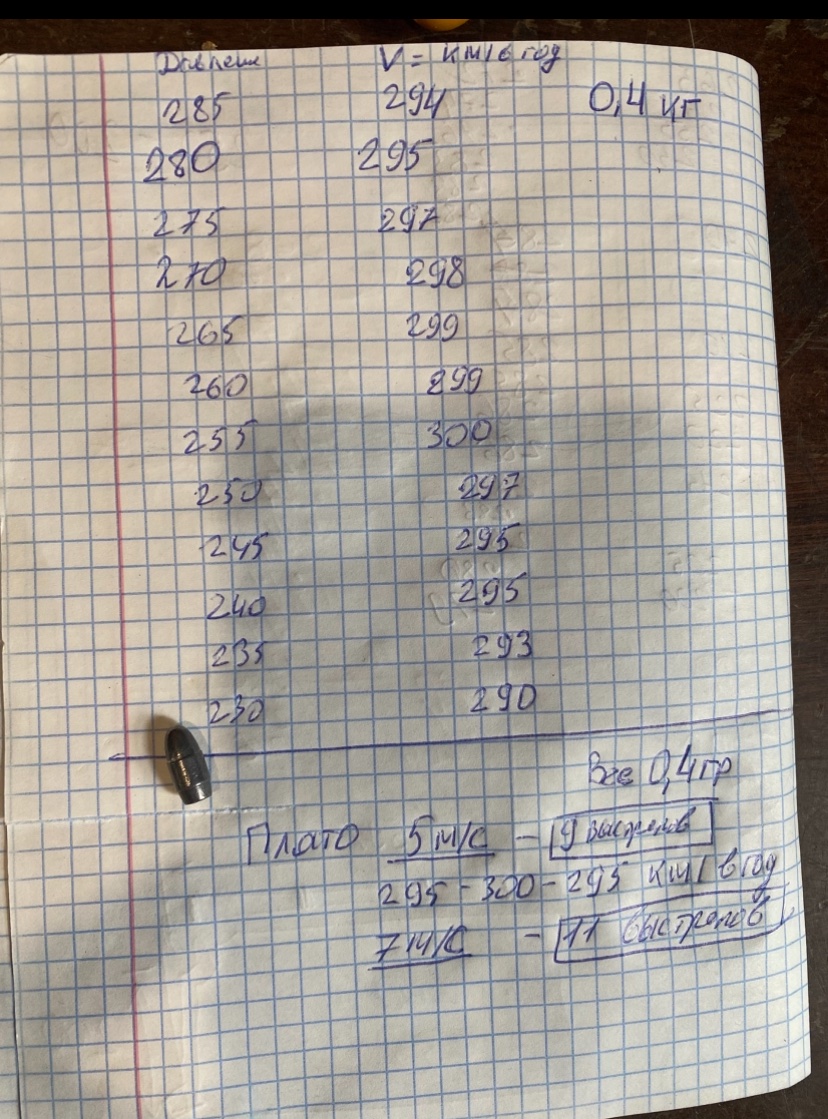 Давление V = км/в год
285 294 0,4 кг
280 295
275 297
270 298
265 299
260 299
255 300
250 297
245 295
240 295
235 293
230 290
Вес 0,4гр
Плато 5 м/с - 9 выстрелов
295 - 300 - 295 км/в год
7 м/с - 11 выстрелов